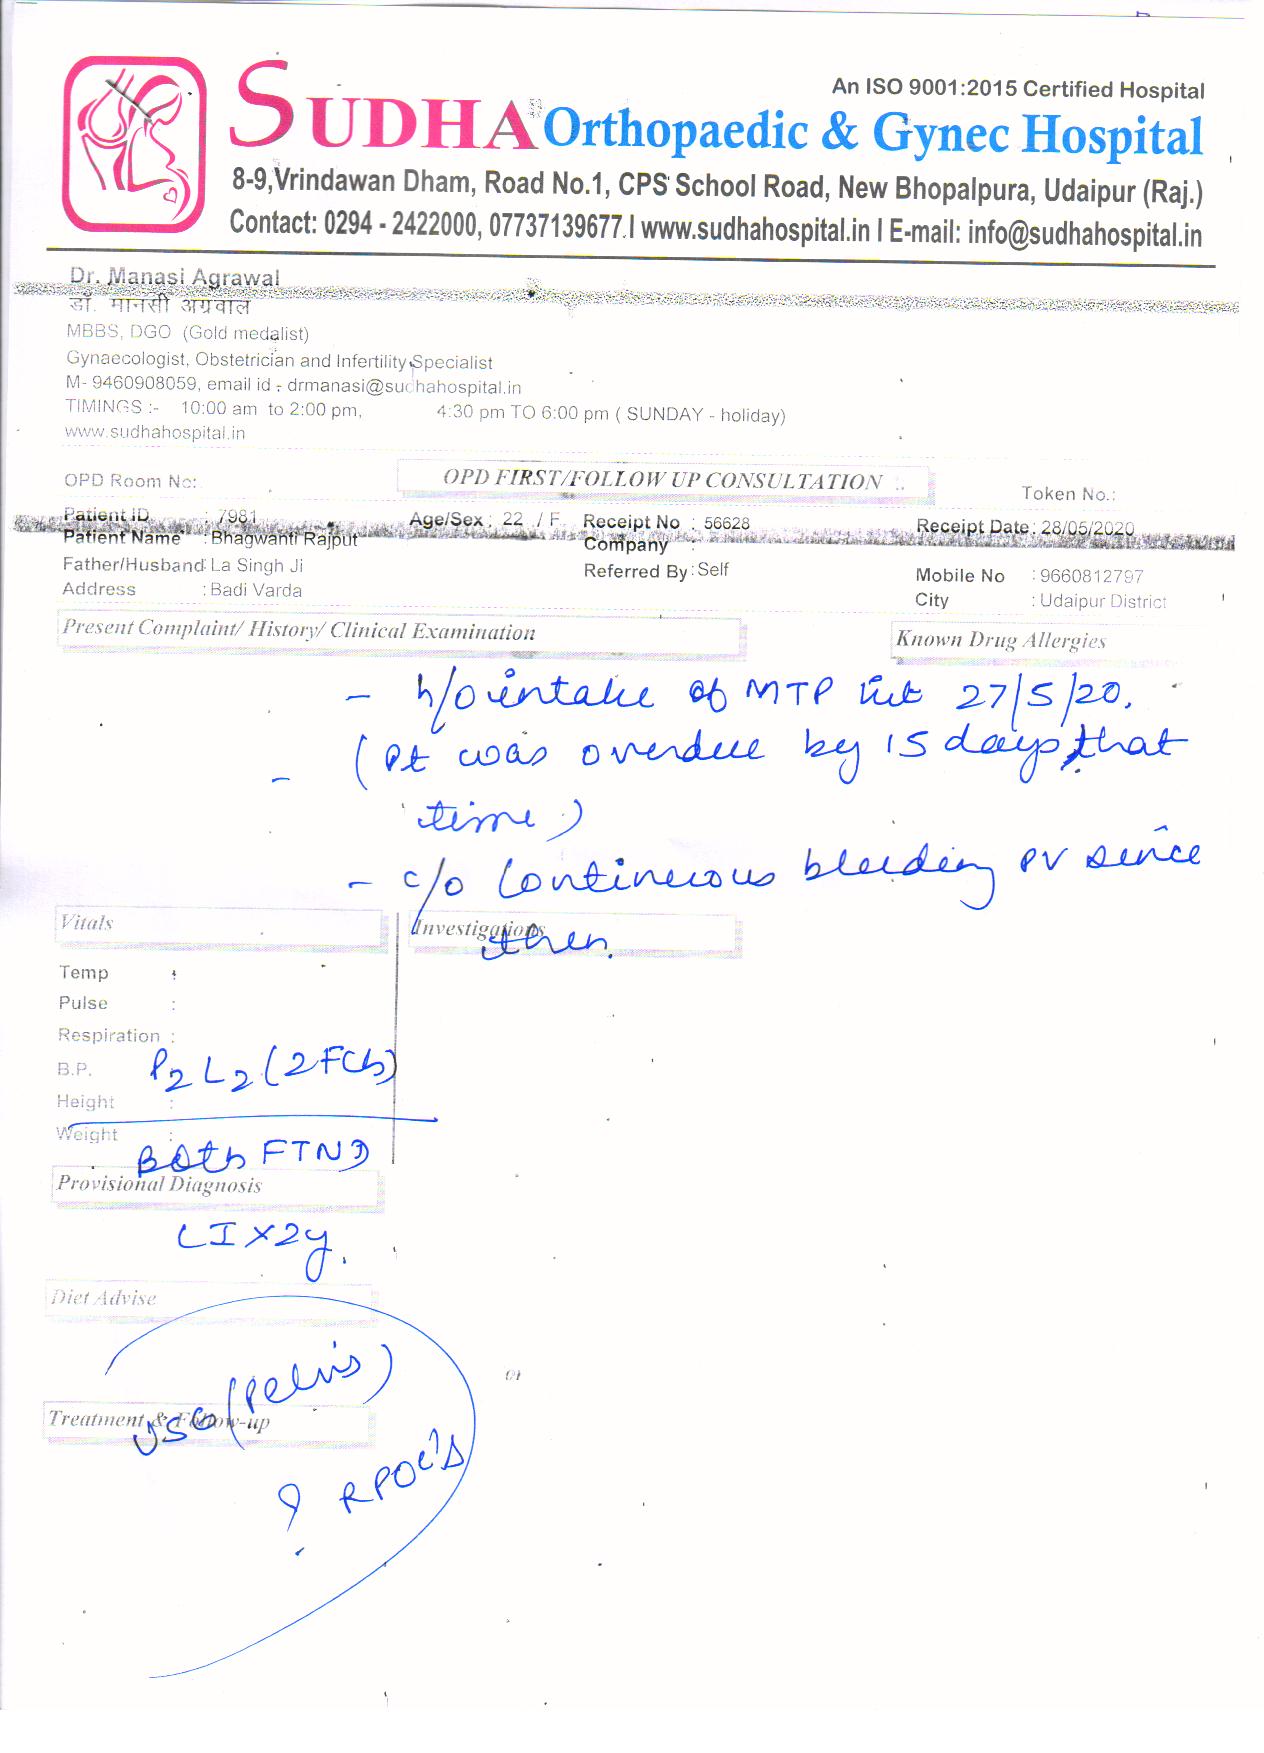 An ISO 9001:2015 Certified Hospital
SUDHA Orthopaedic & Gynec Hospital
8-9,Vrindawan Dham, Road No.1, CPS School Road, New Bhopalpura, Udaipur (Raj.)
Contact: 0294 - 2422000, 07737139677 I www.sudhahospital.in I E-mail: info@sudhahospital.in
Dr. Manasi Agrawal
डॉ. मानसी अग्रवाल
MBBS, DGO (Gold medalist)
Gynaecologist, Obstetrician and Infertility Specialist
M- 9460908059, email id - drmanasi@sudhahospital.in
TIMINGS :- 10:00 am to 2:00 pm, 4:30 pm TO 6:00 pm ( SUNDAY - holiday)
www.sudhahospital.in
OPD Room No: OPD FIRST/FOLLOW UP CONSULTATION Token No.:
Patient ID : 7981 Age/Sex : 22 / F Receipt No : 56628 Receipt Date : 28/05/2020
Patient Name : Bhagwanti Rajput Company :
Father/Husband: La Singh Ji Referred By : Self Mobile No : 9660812797
Address : Badi Varda City : Udaipur District
Present Complaint/ History/ Clinical Examination Known Drug Allergies
- h/o intake of MTP kit 27/5/20.
- (Pt was overdue by 15 days that
time)
- c/o continuous bleeding PV since
then.
Vitals Investigations
Temp :
Pulse :
Respiration :
B.P.
P2 L2 (2FCh)
Height :
Weight :
Both FTND
Provisional Diagnosis
LI x 2y.
Diet Advise
USG (Pelvis)
Treatment & Follow-up
? RPOC's